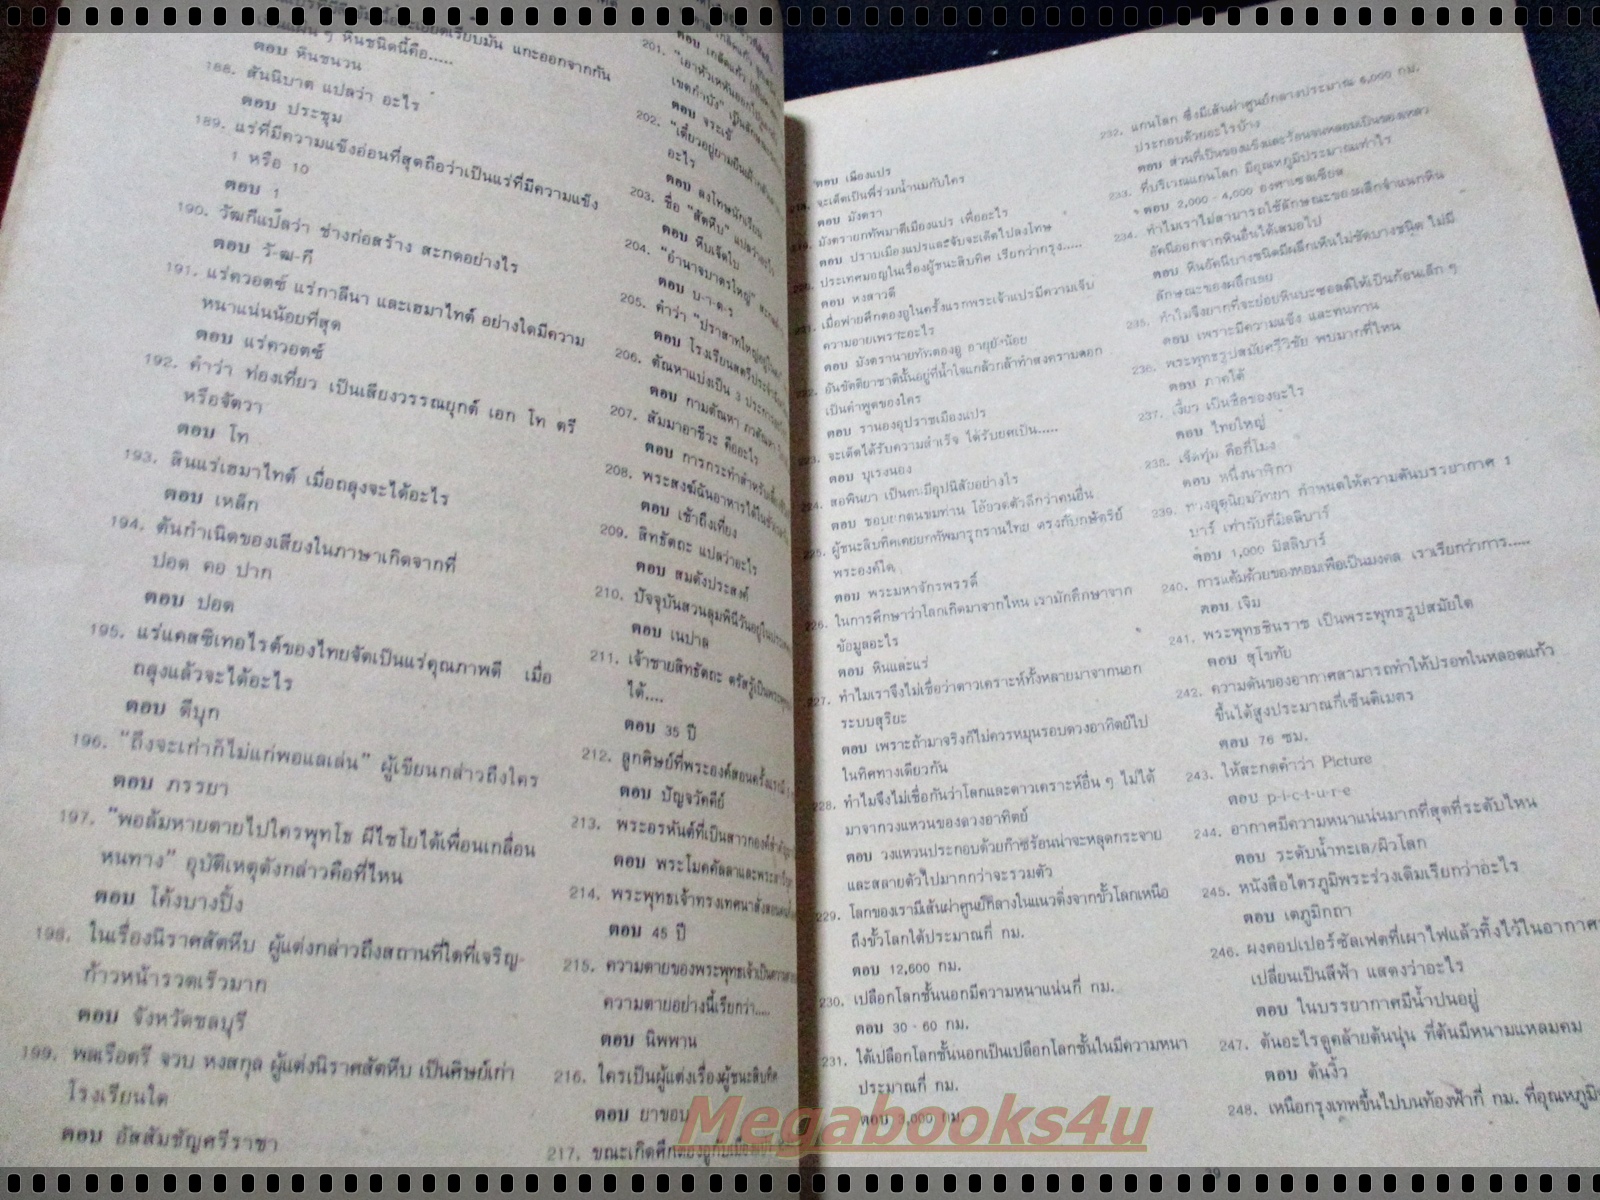 แกะออกจากกัน
หินชนิดนี้คือ.....
ตอบ หินชนวน
188. สันนิบาต แปลว่า อะไร
ตอบ ประชุม
189. แร่ที่มีความแข็งอ่อนที่สุดถือว่าเป็นแร่ที่มีความแข็ง
1 หรือ 10
ตอบ 1
190. วัฒกีแปลว่า ช่างก่อสร้าง สะกดอย่างไร
ตอบ วั-ฒ-กี
191. แร่ควอตซ์ แร่กาลีนา และเฮมาไทต์ อย่างใดมีความ
หนาแน่นน้อยที่สุด
ตอบ แร่ควอตซ์
192. คำว่า ท่องเที่ยว เป็นเสียงวรรณยุกต์ เอก โท ตรี
หรือจัตวา
ตอบ โท
193. สินแร่เฮมาไทต์ เมื่อถลุงจะได้อะไร
ตอบ เหล็ก
194. ต้นกำเนิดของเสียงในภาษาเกิดจากที่
ปอด คอ ปาก
ตอบ ปอด
195. แร่แคสซิเทอไรต์ของไทยจัดเป็นแร่คุณภาพดี เมื่อ
ถลุงแล้วจะได้อะไร
ตอบ ดีบุก
196. "ถึงจะเก่าก็ไม่แก่พอแลเล่น" ผู้เขียนกล่าวถึงใคร
ตอบ ภรรยา
197. "พอล้มหายตายไปใครพุทโธ ผีไชโยได้เพื่อนเกลื่อน
หนทาง" อุบัติเหตุดังกล่าวคือที่ไหน
ตอบ โค้งบางปิ้ง
198. ในเรื่องนิราศสัตหีบ ผู้แต่งกล่าวถึงสถานที่ใดที่เจริญ-
ก้าวหน้ารวดเร็วมาก
ตอบ จังหวัดชลบุรี
199. พลเรือตรี จวบ หงสกุล ผู้แต่งนิราศสัตหีบ เป็นศิษย์เก่า
โรงเรียนใด
ตอบ อัสสัมชัญศรีราชา
201.
ตอบ จระเข้
202.
อะไร
ตอบ ลงโทษนักเรียน
203. ชื่อ "สัตหีบ" แปลว่าอะไร
ตอบ หีบเจ็ดใบ
204. "อำนาจบาตรใหญ่"
ตอบ บ-า-ต-ร
205. คำว่า
ตอบ
206. ตัณหาแบ่งเป็น 3
ตอบ กามตัณหา ภวตัณหา
207. สัมมาอาชีวะ คืออะไร
ตอบ
208. พระสงฆ์ฉันอาหารได้ใน
ตอบ เช้าถึงเที่ยง
209. สิทธัตถะ แปลว่าอะไร
ตอบ สมดังประสงค์
210. ปัจจุบันสวนลุมพินีวันอยู่ใน
ตอบ เนปาล
211. เจ้าชายสิทธัตถะ ตรัสรู้เป็น
ได้.....
ตอบ 35 ปี
212. ลูกศิษย์ที่พระองค์สอนครั้งแรก
ตอบ ปัญจวัคคีย์
213. พระอรหันต์ที่เป็นสาวกองค์สำคัญ
ตอบ พระโมคคัลลาและ
214. พระพุทธเจ้าทรงเทศนาสั่งสอน
ตอบ 45 ปี
215. ความตายของพระพุทธเจ้าเป็น
ความตายอย่างนี้เรียกว่า.....
ตอบ นิพพาน
216. ใครเป็นผู้แต่งเรื่องผู้ชนะสิบทิศ
ตอบ ยาขอบ
217. ขณะเกิดศึก
ตอบ เมืองแปร
จะเด็ดเป็นพี่ร่วมน้ำนมกับใคร
ตอบ มังตรา
มังตรายกทัพมาตีเมืองแปร เพื่ออะไร
ตอบ ปราบเมืองแปรและจับจะเด็ดไปลงโทษ
ประเทศมอญในเรื่องผู้ชนะสิบทิศ เรียกว่ากรุง.....
ตอบ หงสาวดี
เมื่อพ่ายศึกตองอูในครั้งแรกพระเจ้าแปรมีความเจ็บ
ความอายเพราะอะไร
ตอบ มังตรานายทัพตองอู อายุยังน้อย
อันขัตติยาชาตินั้นอยู่ที่น้ำใจแกล้วกล้าทำสงครามดอก
เป็นคำพูดของใคร
ตอบ รานองอุปราชเมืองแปร
จะเด็ดได้รับความสำเร็จ ได้รับยศเป็น.....
ตอบ บุเรงนอง
สอพินยา เป็นคนมีอุปนิสัยอย่างไร
ตอบ ชอบยกตนข่มท่าน โอ้อวดตัวดีกว่าคนอื่น
225. ผู้ชนะสิบทิศเคยยกทัพมารุกรานไทย ตรงกับกษัตริย์
พระองค์ใด
ตอบ พระมหาจักรพรรดิ์
226. ในการศึกษาว่าโลกเกิดมาจากไหน เรามักศึกษาจาก
ข้อมูลอะไร
ตอบ หินและแร่
227. ทำไมเราจึงไม่เชื่อว่าดาวเคราะห์ทั้งหลายมาจากนอก
ระบบสุริยะ
ตอบ เพราะถ้ามาจริงก็ไม่ควรหมุนรอบดวงอาทิตย์ไป
ในทิศทางเดียวกัน
228. ทำไมจึงไม่เชื่อกันว่าโลกและดาวเคราะห์อื่น ๆ ไม่ได้
มาจากวงแหวนของดวงอาทิตย์
ตอบ วงแหวนประกอบด้วยก๊าซร้อนน่าจะหลุดกระจาย
และสลายตัวไปมากกว่าจะรวมตัว
229. โลกของเรามีเส้นผ่าศูนย์กลางในแนวดิ่งจากขั้วโลกเหนือ
ถึงขั้วโลกใต้ประมาณกี่ กม.
ตอบ 12,600 กม.
230. เปลือกโลกชั้นนอกมีความหนาแน่นกี่ กม.
ตอบ 30 - 60 กม.
231. ใต้เปลือกโลกชั้นนอกเป็นเปลือกโลกชั้นในมีความหนา
ประมาณกี่ กม.
ตอบ 3,000 กม.
232. แกนโลก ซึ่งมีเส้นผ่าศูนย์กลางประมาณ 6,000 กม.
ประกอบด้วยอะไรบ้าง
ตอบ ส่วนที่เป็นของแข็งและร้อนจนหลอมเป็นของเหลว
233. ที่บริเวณแกนโลก มีอุณหภูมิประมาณเท่าไร
ตอบ 2,000 - 4,000 องศาเซลเซียส
234. ทำไมเราไม่สามารถใช้ลักษณะของผลึกจำแนกหิน
อัคนีออกจากหินอื่นได้เสมอไป
ตอบ หินอัคนีบางชนิดมีผลึกเห็นไม่ชัดบางชนิด ไม่มี
ลักษณะของผลึกเลย
235. ทำไมจึงยากที่จะย่อยหินบะซอลต์ให้เป็นก้อนเล็ก ๆ
ตอบ เพราะมีความแข็ง และทนทาน
236. พระพุทธรูปสมัยศรีวิชัย พบมากที่ไหน
ตอบ ภาคใต้
237. เงี้ยว เป็นชื่อของอะไร
ตอบ ไทยใหญ่
238. เจ็ดทุ่ม คือกี่โมง
ตอบ หนึ่งนาฬิกา
239. ทางอุตุนิยมวิทยา กำหนดให้ความดันบรรยากาศ 1
บาร์ เท่ากับกี่มิลลิบาร์
ตอบ 1,000 มิลลิบาร์
240. การแต้มด้วยของหอมเพื่อเป็นมงคล เราเรียกว่าการ.....
ตอบ เจิม
241. พระพุทธชินราช เป็นพระพุทธรูปสมัยใด
ตอบ สุโขทัย
242. ความดันของอากาศสามารถทำให้ปรอทในหลอดแก้ว
ขึ้นได้สูงประมาณกี่เซ็นติเมตร
ตอบ 76 ซม.
243. ให้สะกดคำว่า Picture
ตอบ p-i-c-t-u-r-e
244. อากาศมีความหนาแน่นมากที่สุดที่ระดับไหน
ตอบ ระดับน้ำทะเล/ผิวโลก
245. หนังสือไตรภูมิพระร่วงเดิมเรียกว่าอะไร
ตอบ เตภูมิกถา
246. ผงคอปเปอร์ซัลเฟตที่เผาไฟแล้วทิ้งไว้ในอากาศ
เปลี่ยนเป็นสีฟ้า แสดงว่าอะไร
ตอบ ในบรรยากาศมีน้ำปนอยู่
247. ต้นอะไรดูคล้ายต้นนุ่น ที่ต้นมีหนามแหลมคม
ตอบ ต้นงิ้ว
248. เหนือกรุงเทพขึ้นไปบนท้องฟ้ากี่ กม. ที่อุณหภูมิ
Megabooks4u